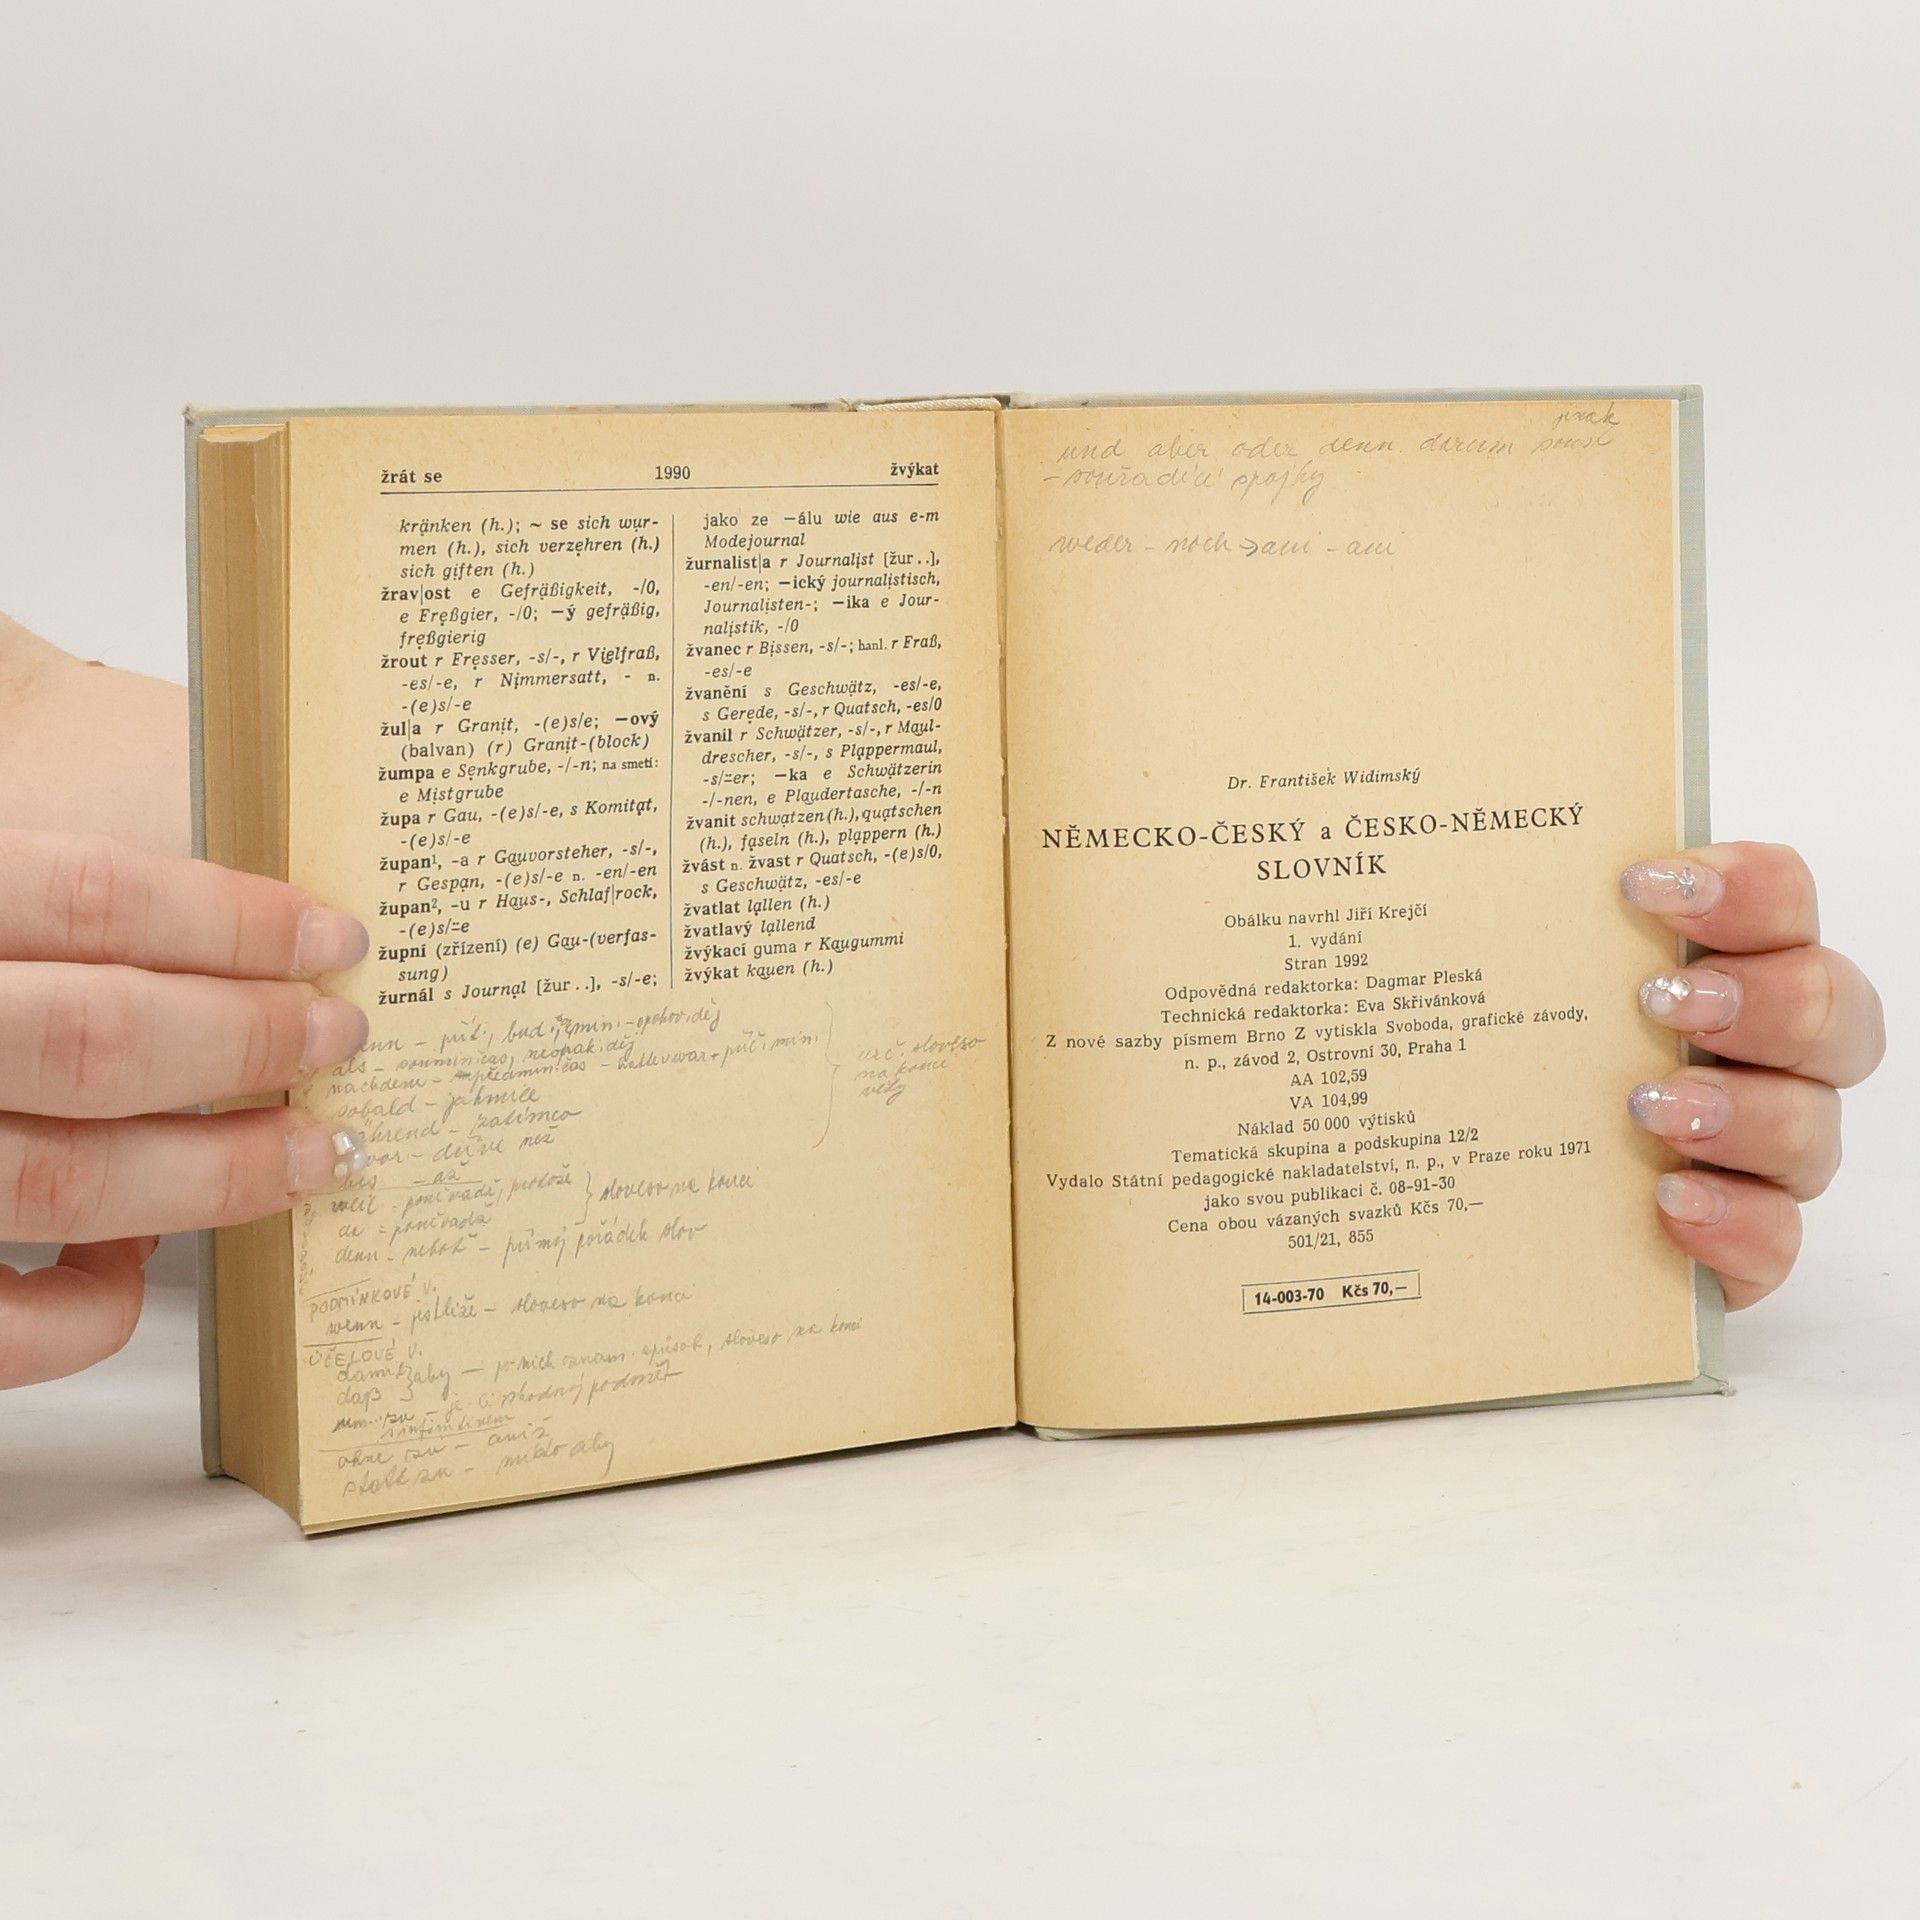 žrát se 1990 žvýkat
kränken (h.); ~ se sich wur-
men (h.), sich verzehren (h.)
sich giften (h.)
žrav|ost e Gefräßigkeit, -/0,
e Freßgier, -/0; —ý gefräßig,
freßgierig
žrout r Fresser, -s/-, r Vielfraß,
-es/-e, r Nimmersatt, - n.
-(e)s/-e
žul|a r Granit, -(e)s/e; —ový
(balvan) (r) Granit-(block)
žumpa e Senkgrube, -/-n; na smetí:
e Mistgrube
župa r Gau, -(e)s/-e, s Komitat,
-(e)s/-e
župan¹, -a r Gauvorsteher, -s/-,
r Gespan, -(e)s/-e n. -en/-en
župan², -u r Haus-, Schlaf|rock,
-(e)s/⸚e
župní (zřízení) (e) Gau-(verfas-
sung)
žurnál s Journal [žur..], -s/-e;
jako ze —álu wie aus e-m
Modejournal
žurnalist|a r Journalist [žur..],
-en/-en; —ický journalistisch,
Journalisten-; —ika e Jour-
nalistik, -/0
žvanec r Bissen, -s/-; hanl. r Fraß,
-es/-e
žvanění s Geschwätz, -es/-e,
s Gerede, -s/-, r Quatsch, -es/0
žvanil r Schwätzer, -s/-, r Maul-
drescher, -s/-, s Plappermaul,
-s/⸚er; —ka e Schwätzerin
-/-nen, e Plaudertasche, -/-n
žvanit schwatzen (h.), quatschen
(h.), faseln (h.), plappern (h.)
žvást n. žvast r Quatsch, -(e)s/0,
s Geschwätz, -es/-e
žvatlat lallen (h.)
žvatlavý lallend
žvýkací guma r Kaugummi
žvýkat kauen (h.)
als – současnost, neopak. děj
nachdem – předmin. čas – hatte u war + příč. min.
sobald – jakmile
– zatímco
– dříve než
bis – až
weil – poněvadž, protože } sloveso na konci
da = poněvadž
denn – neboť – přímý pořádek slov
urč. sloveso
na konci
věty
PODMÍNKOVÉ V.
wenn – jestliže – sloveso na konci
ÚČELOVÉ V.
damit } aby – sloveso na konci
daß
um...zu – je-li shodný podmět
s infinitivem
ohne zu – aniž
statt zu – místo aby
jinak
und aber oder denn darum sonst
– souřadící spojky
weder – noch → ani – ani
Dr. František Widimský
NĚMECKO-ČESKÝ a ČESKO-NĚMECKÝ
SLOVNÍK
Obálku navrhl Jiří Krejčí
1. vydání
Stran 1992
Odpovědná redaktorka: Dagmar Pleská
Technická redaktorka: Eva Skřivánková
Z nové sazby písmem Brno Z vytiskla Svoboda, grafické závody,
n. p., závod 2, Ostrovní 30, Praha 1
AA 102,59
VA 104,99
Náklad 50 000 výtisků
Tematická skupina a podskupina 12/2
Vydalo Státní pedagogické nakladatelství, n. p., v Praze roku 1971
jako svou publikaci č. 08-91-30
Cena obou vázaných svazků Kčs 70,—
501/21, 855
14-003-70 Kčs 70,—